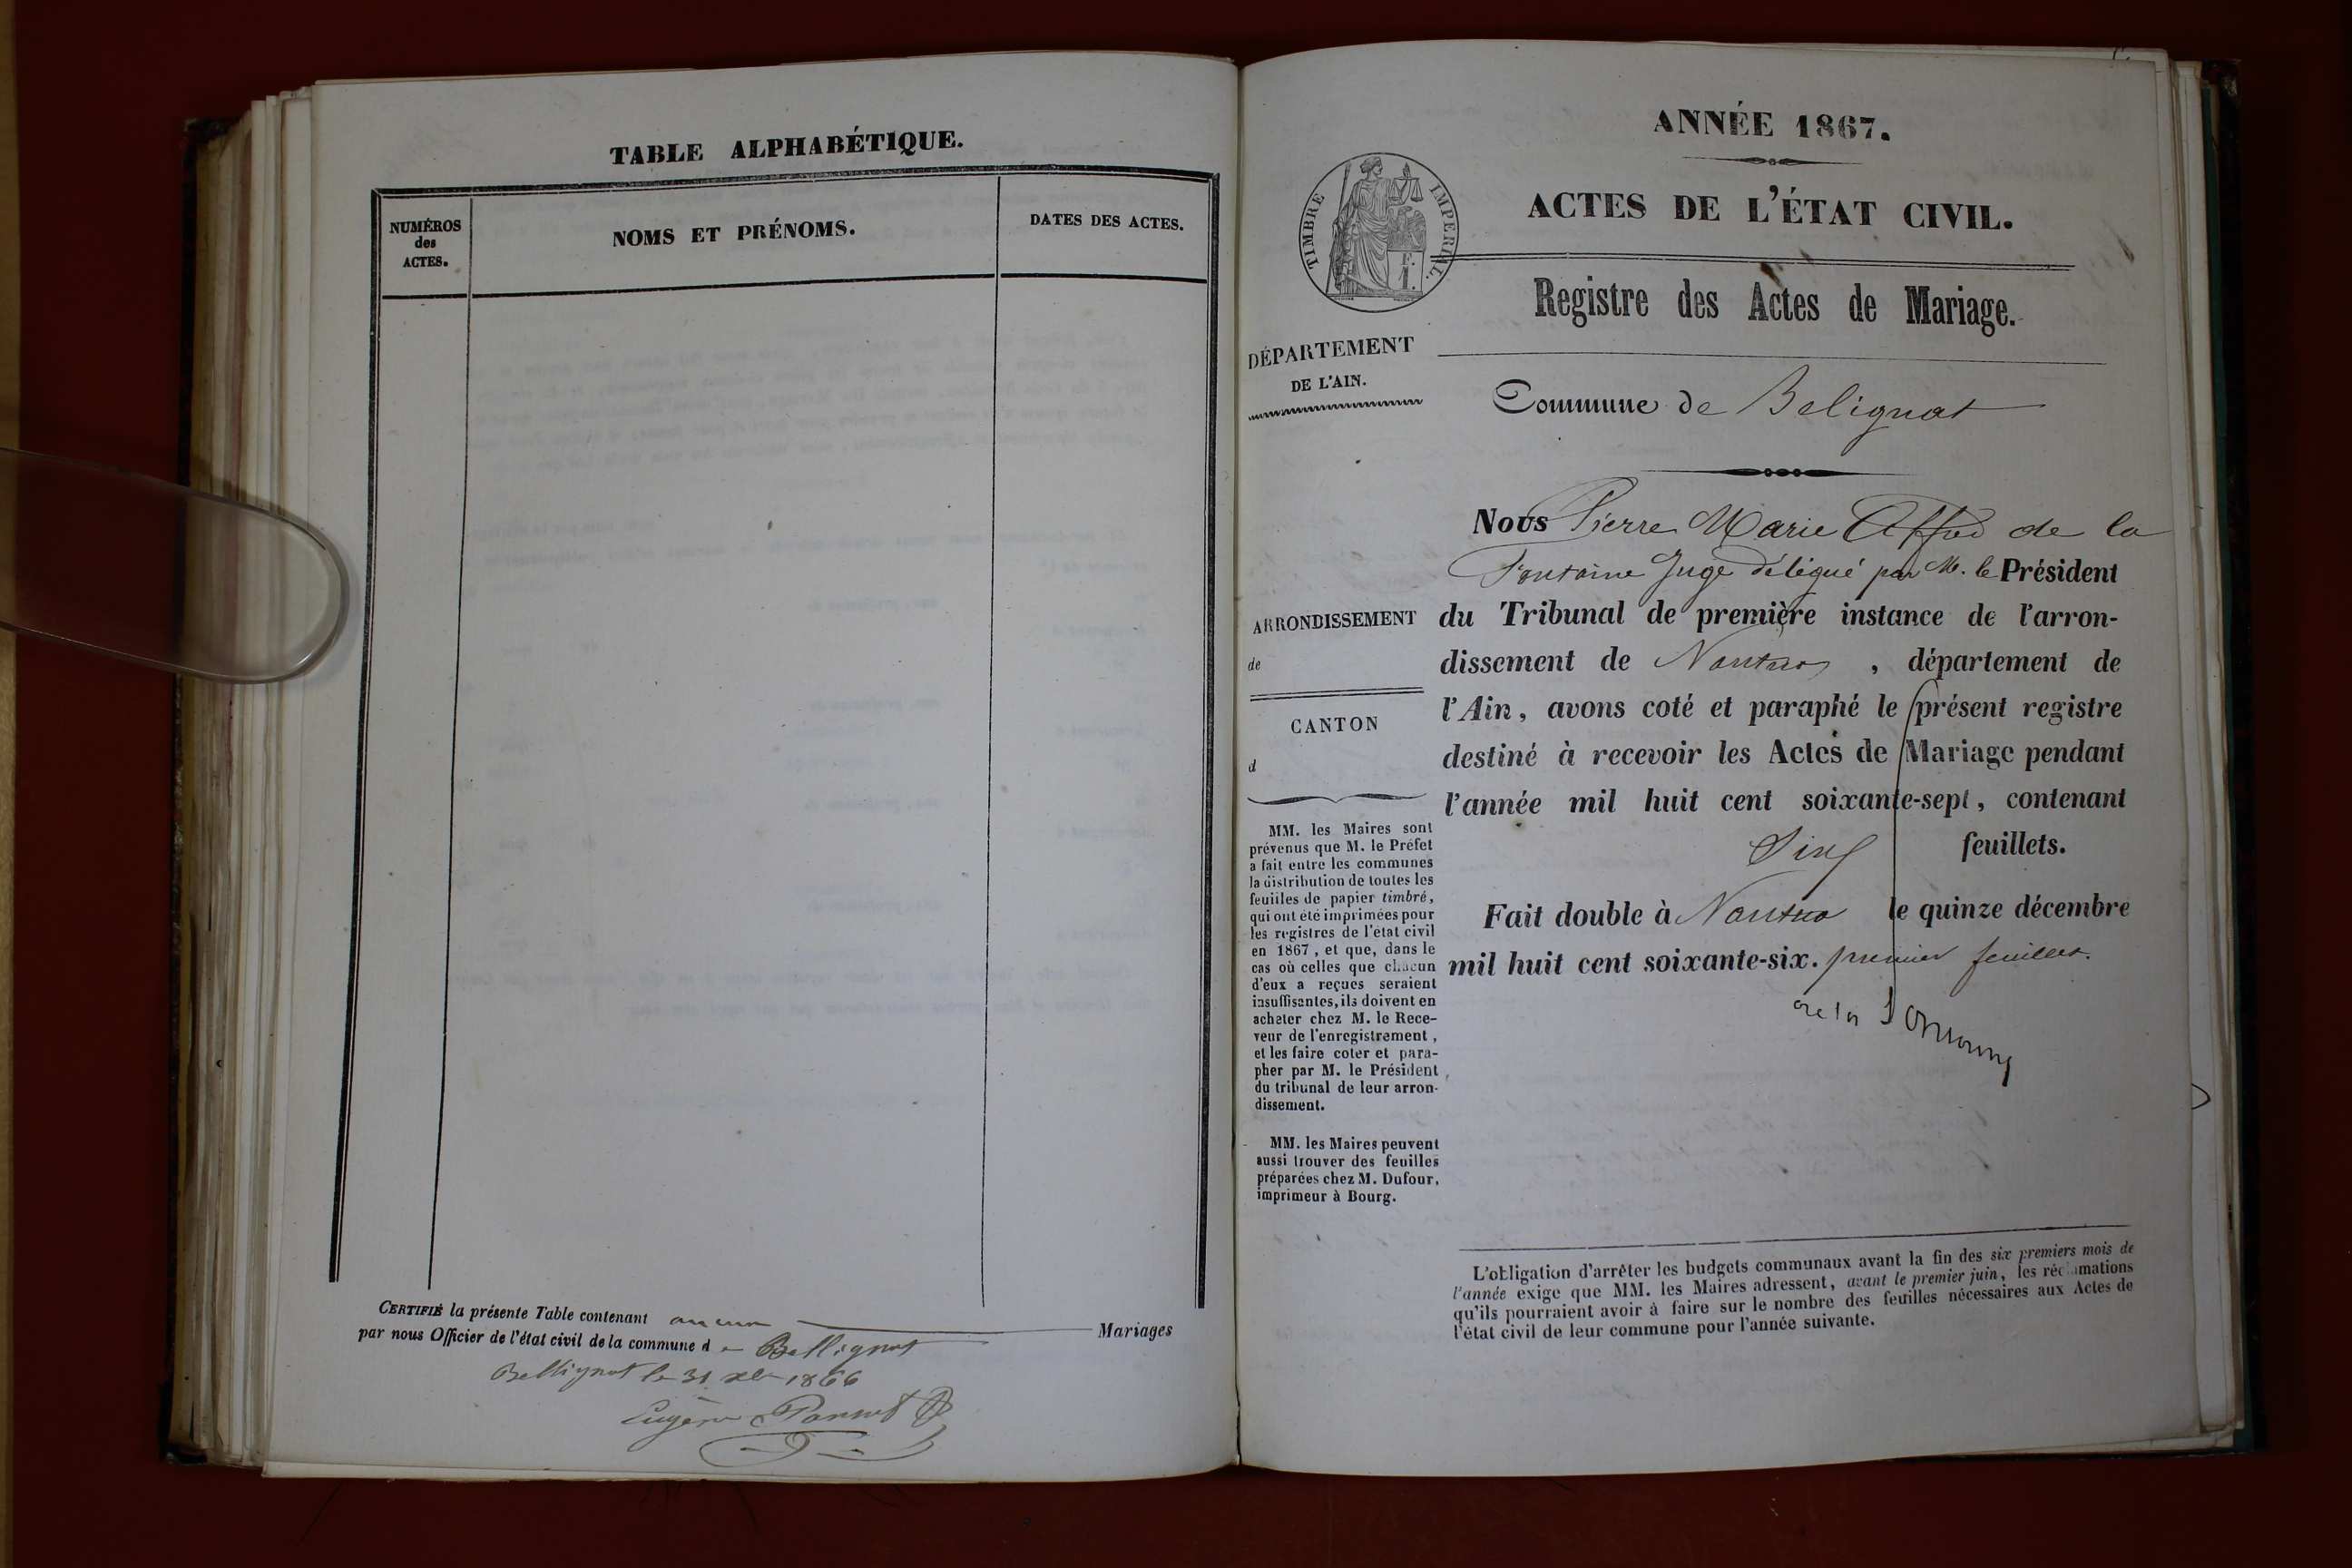 TABLE ALPHABÉTIQUE.
NUMÉROS
des
ACTES.
NOMS ET PRÉNOMS.
DATES DES ACTES.
CERTIFIÉ la présente Table contenant aucun Mariages
par nous Officier de l'état civil de la commune de Bellignat
Bellignat le 31 xbre 1866
Eugène
ANNÉE 1867.
ACTES DE L'ÉTAT CIVIL.
TIMBRE IMPERIAL.
F.
1.
Registre des Actes de Mariage.
DÉPARTEMENT
DE L'AIN.
Commune de Belignat
Nous Pierre Marie Alfred de la
Fontaine Juge délégué par M. le Président
du Tribunal de première instance de l'arron-
dissement de Nantua, département de
l'Ain, avons coté et paraphé le présent registre
destiné à recevoir les Actes de Mariage pendant
l'année mil huit cent soixante-sept, contenant
feuillets.
Fait double à Nantua le quinze décembre
mil huit cent soixante-six. premier feuillet.
de la Fontaine
ARRONDISSEMENT
de
CANTON
d
MM. les Maires sont
prévenus que M. le Préfet
a fait entre les communes
la distribution de toutes les
feuilles de papier timbré,
qui ont été imprimées pour
les registres de l'état civil
en 1867, et que, dans le
cas où celles que chacun
d'eux a reçues seraient
insuffisantes, ils doivent en
acheter chez M. le Rece-
veur de l'enregistrement,
et les faire coter et para-
pher par M. le Président
du tribunal de leur arron-
dissement.
MM. les Maires peuvent
aussi trouver des feuilles
préparées chez M. Dufour,
imprimeur à Bourg.
L'obligation d'arrêter les budgets communaux avant la fin des six premiers mois de
l'année exige que MM. les Maires adressent, avant le premier juin, les réclamations
qu'ils pourraient avoir à faire sur le nombre des feuilles nécessaires aux Actes de
l'état civil de leur commune pour l'année suivante.